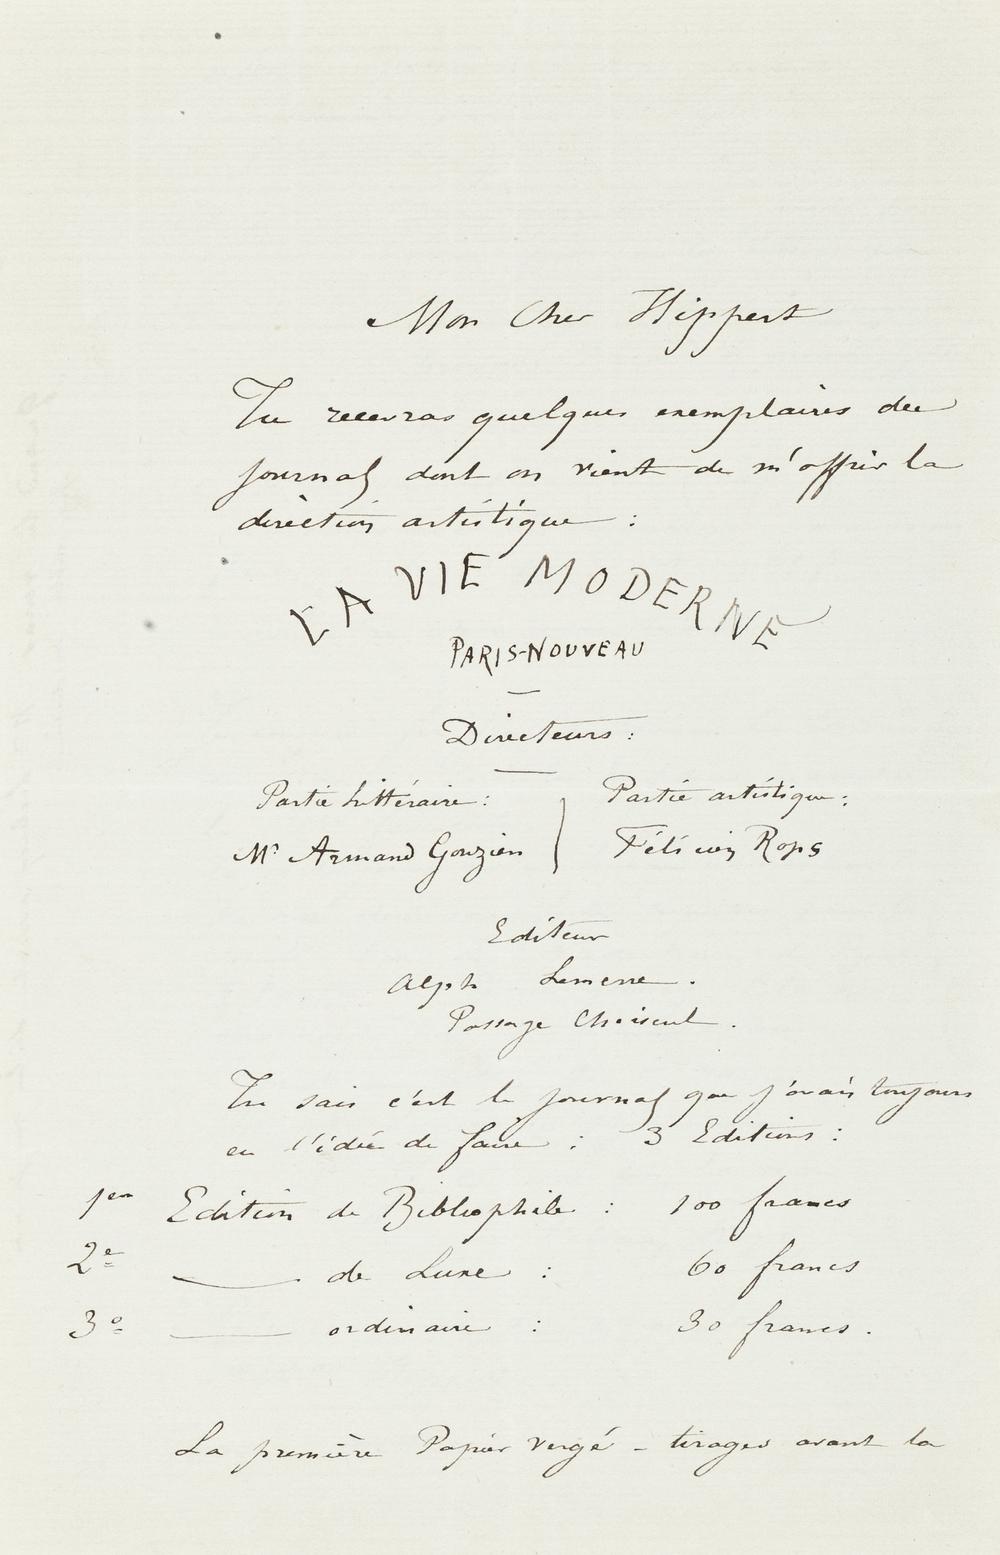 Mon Cher Hippert
Tu recevras quelques exemplaires du
journal dont on vient de m'offrir la
direction artistique :
LA VIE MODERNE
PARIS-NOUVEAU
Directeurs :
Partie littéraire : Partie artistique :
Mr Armand Gouzien Félicien Rops
Editeur
Alph Lemerre .
Passage Choiseul .
Tu sais c'est le journal que j'avais toujours
eu l'idée de faire : 3 Editions :
1ere Edition de Bibliophile : 100 francs
2e — de Luxe : 60 francs
3o — ordinaire : 30 francs .
La première Papier vergé - tirages avant la